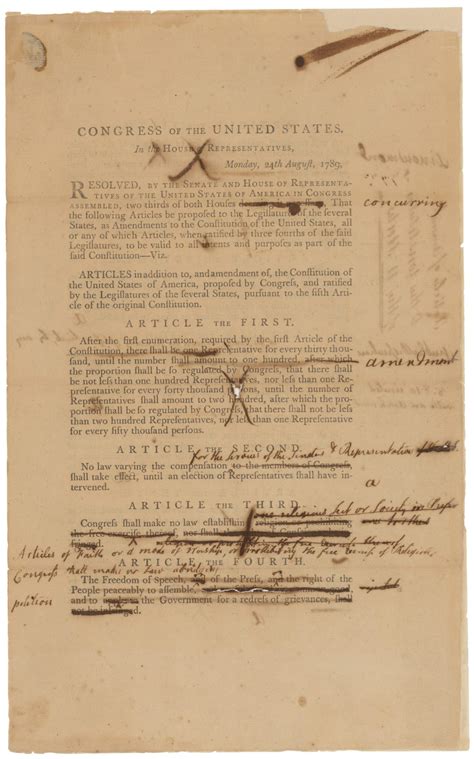 CONGRESS OF THE UNITED STATES.
In the HOUSE OF REPRESENTATIVES,
Monday, 24th August, 1789,
RESOLVED, BY THE SENATE AND HOUSE OF REPRESENTA-
TIVES OF THE UNITED STATES OF AMERICA IN CONGRESS
ASSEMBLED, two thirds of both Houses That concurring
the following Articles be proposed to the Legislatures of the several
States, as Amendments to the Constitution of the United States, all
or any of which Articles, when ratified by three fourths of the said
Legislatures, to be valid to all intents and purposes as part of the
said Constitution—Viz.
ARTICLES in addition to, and amendment of, the Constitution of
the United States of America, proposed by Congress, and ratified
by the Legislatures of the several States, pursuant to the fifth Arti-
cle of the original Constitution.
ARTICLE THE FIRST.
After the first enumeration, required by the first Article of the
Constitution, there shall be one Representative for every thirty thou-
sand, until the number shall amount to one hundred, after which amendment
the proportion shall be so regulated by Congress, that there shall
be not less than one hundred Representatives, nor less than one Re-
presentative for every forty thousand persons, until the number of
Representatives shall amount to two hundred, after which the pro-
portion shall be so regulated by Congress, that there shall not be less
than two hundred Representatives, nor less than one Representative
for every fifty thousand persons.
ARTICLE THE SECOND.
for the services of the Senators & Representatives
No law varying the compensation to the members of Congress,
shall take effect, until an election of Representatives shall have in-
tervened.
a
ARTICLE THE THIRD.
one religious Sect or Society in Prefer
Congress shall make no law establishing religion or prohibiting
the free exercise thereof, nor shall
fringed.
Articles of Faith or a mode of Worship, or prohibiting the free exercise of Religion,
Congress shall make no law abridging
ARTICLE THE FOURTH.
The Freedom of Speech, of the Press, and the right of the
petition
People peaceably to assemble,
and to the Government for a redress of grievances, shall
not be infringed.